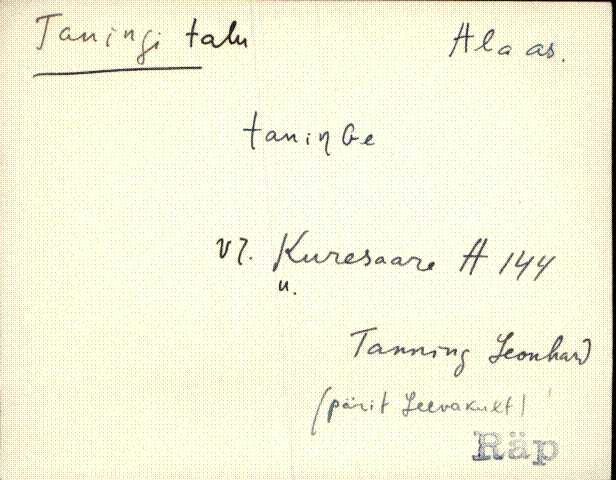 Taningi talu Ala as.
taninGe
vz. Kuresaare A 144
u.
Tanning Leonhard
(pärit Leevakult)
Räp